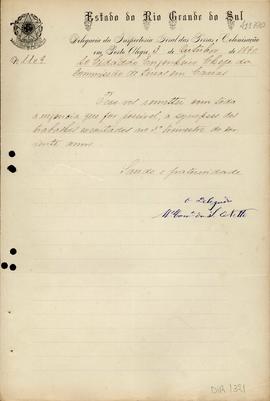 Estado do Rio Grande do Sul
Delegacia da Inspectoria Geral das Terras e Colonisação
em Porto Alegre, 3 de Outubro de 1890
Nº 1109
Ao Cidadão Engenheiro Chefe da
Commissão de Terras em Caxias
remetter com toda
a urgencia que for possivel, a synopse dos
trabalhos executados no 3º trimestre do cor
rente anno.
Saude e fraternidade
O Delegado
DIR 1321